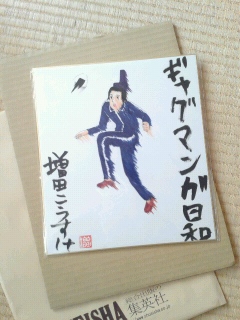 ギャグマンガ日和
増田こうすけ
集英社
EISHA